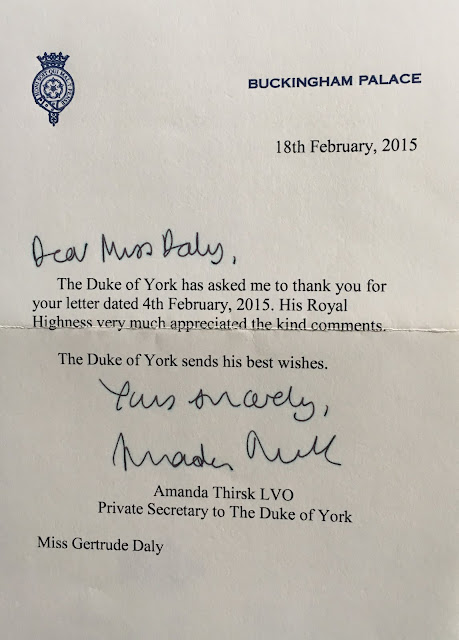 BUCKINGHAM PALACE
18th February, 2015
Dear Miss Daly,
The Duke of York has asked me to thank you for
your letter dated 4th February, 2015. His Royal
Highness very much appreciated the kind comments.
The Duke of York sends his best wishes.
Yours sincerely,
Amanda Thirsk
Amanda Thirsk LVO
Private Secretary to The Duke of York
Miss Gertrude Daly